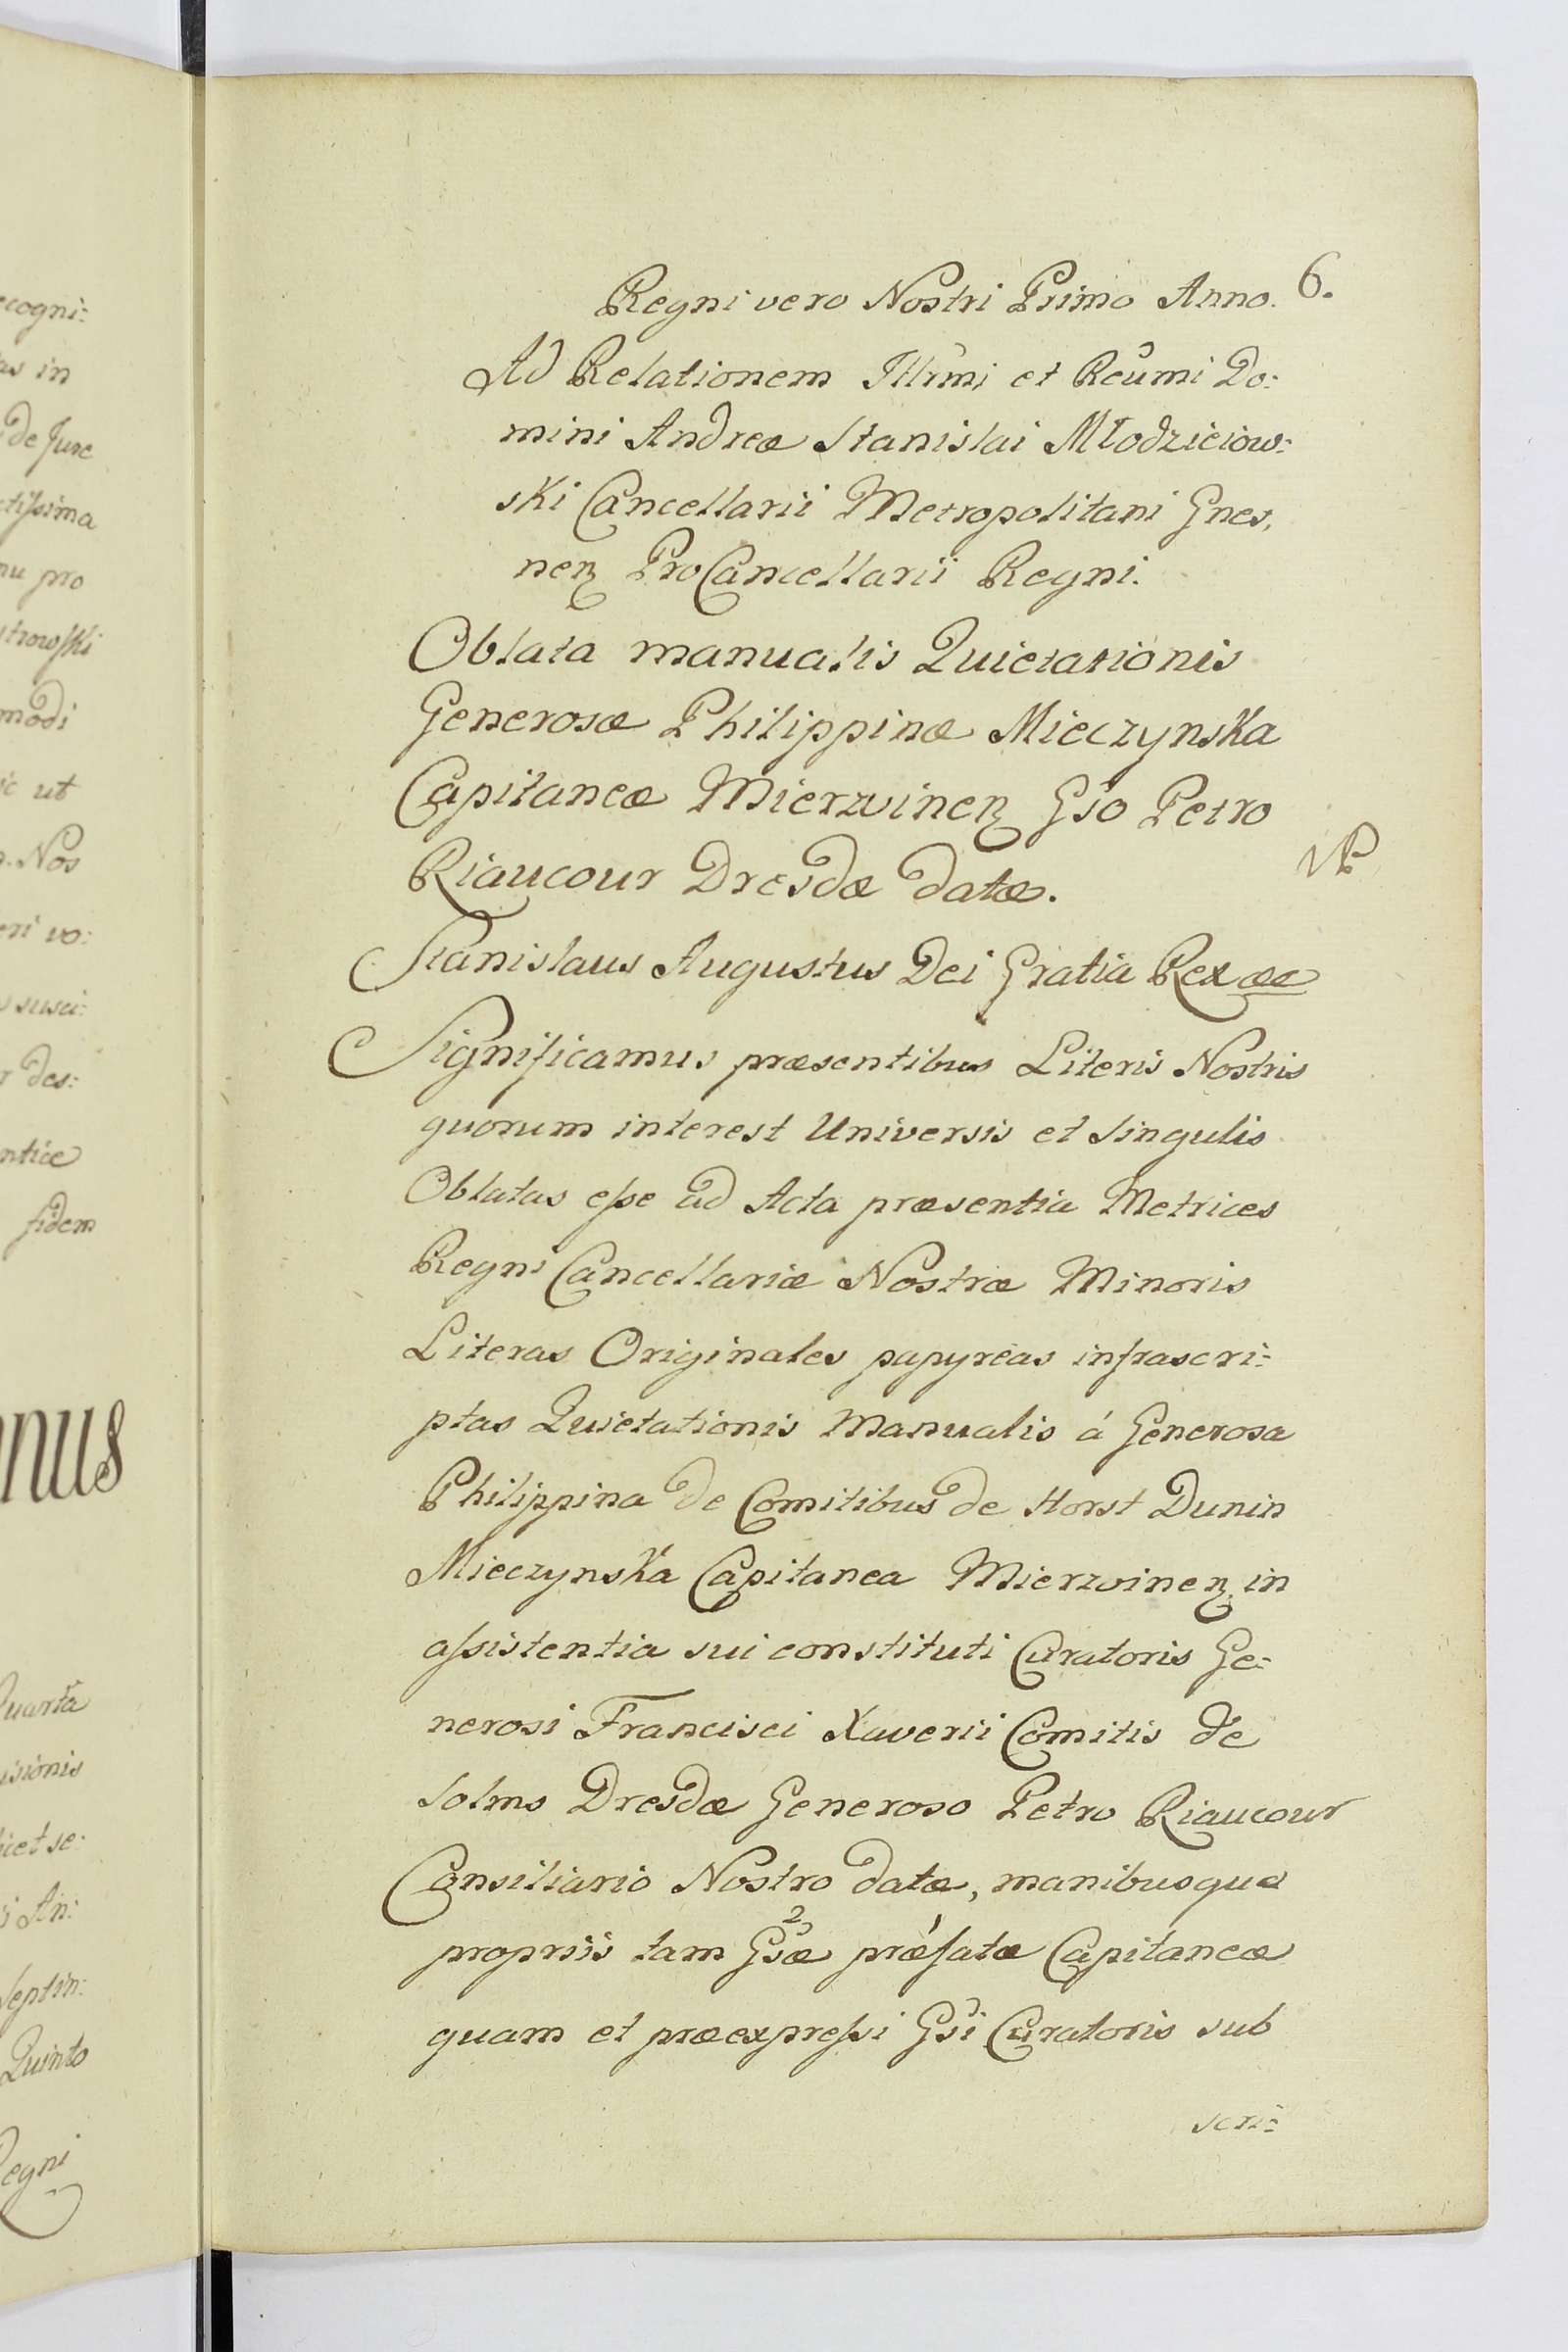 ecogni:
as in
de Jure
ctissima
nu pro
strowski
modi
ic ut
Nos
eri vo:
susci:
r des:
ntice
fidem
nus
Quarta
isionis
licet se:
i An:
Septin:
Quinto
Regni
6.
Regni vero Nostri Primo Anno.
Ad Relationem Illrmi et Reumi Do:
mini Andreæ Stanislai Młodzieiow:
ski Cancellarii Metropolitani Gnes,
nen ProCancellarii Regni.
Oblata manualis Quietationis
Generosæ Philippinæ Mieczynska
Capitaneæ Mierzwinen Gso Petro
Riaucour Dresdæ datæ.
Stanislaus Augustus Dei Gratia Rex &c
Significamus præsentibus Literis Nostris
quorum interest Universis et singulis
Oblatas esse ad Acta præsentia Metrices
Regni Cancellariæ Nostræ Minoris
Literas Originales papyreas infrascri:
ptas Quietationis Manualis á Generosa
Philippina de Comitibus de Horst Dunin
Mieczynska Capitanea Mierzwinen in
assistentia sui constituti Curatoris Ge:
nerosi Francisci Xaverii Comitis de
Solms Dresdæ Generoso Petro Riaucour
Consiliario Nostro datæ, manibusque
propriis tam Gsæ præfatæ Capitaneæ
quam et præexpressi Gsi Curatoris sub
scri: